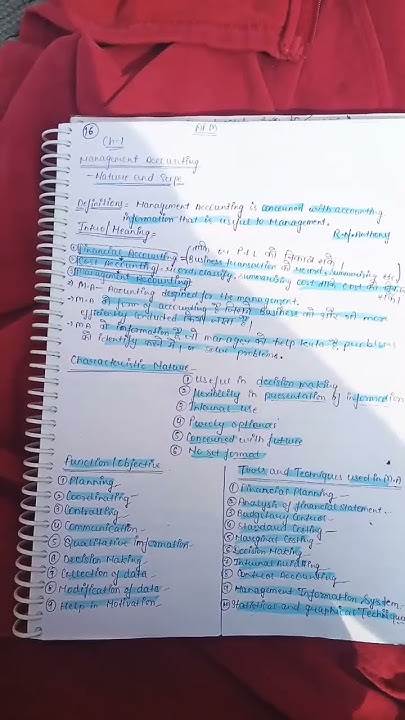 16
AFM
Ch-1
Management Accounting
- Nature and Scope
Definition:- Management Accounting is concerned with accounting
information that is useful to Management.
R.N. Anthony
Intro/Meaning:-
① Financial Accounting -
② Cost Accounting - record, classify, summarising cost
③ Management Accounting
→ M.A - Accounting designed for the management.
→ M.A Business
efficiently conducted
→ M.A information manager help problems
identify or solve problems.
Characteristic Nature -
① Useful in decision making
② flexibility in presentation of information
③ Internal use
④ Purely optional
⑤ Concerned with future
⑥ No set format
Function/Objective
① Planning -
② Coordinating
③ Controlling
④ Communication -
⑤ Qualitative information -
⑥ Decision Making -
⑦ Collection of data -
⑧ Modification of data -
⑨ Help in Motivation -
Tools and Techniques used in M.A
① Financial Planning -
② Analysis of financial statement.
③ Budgetary Control -
④ Standard Costing -
⑤ Marginal Costing -
⑥ Decision Making -
⑦ Internal Auditing -
⑧ Control Accounting -
⑨ Management Information System -
⑩ Statistical and graphical Technique